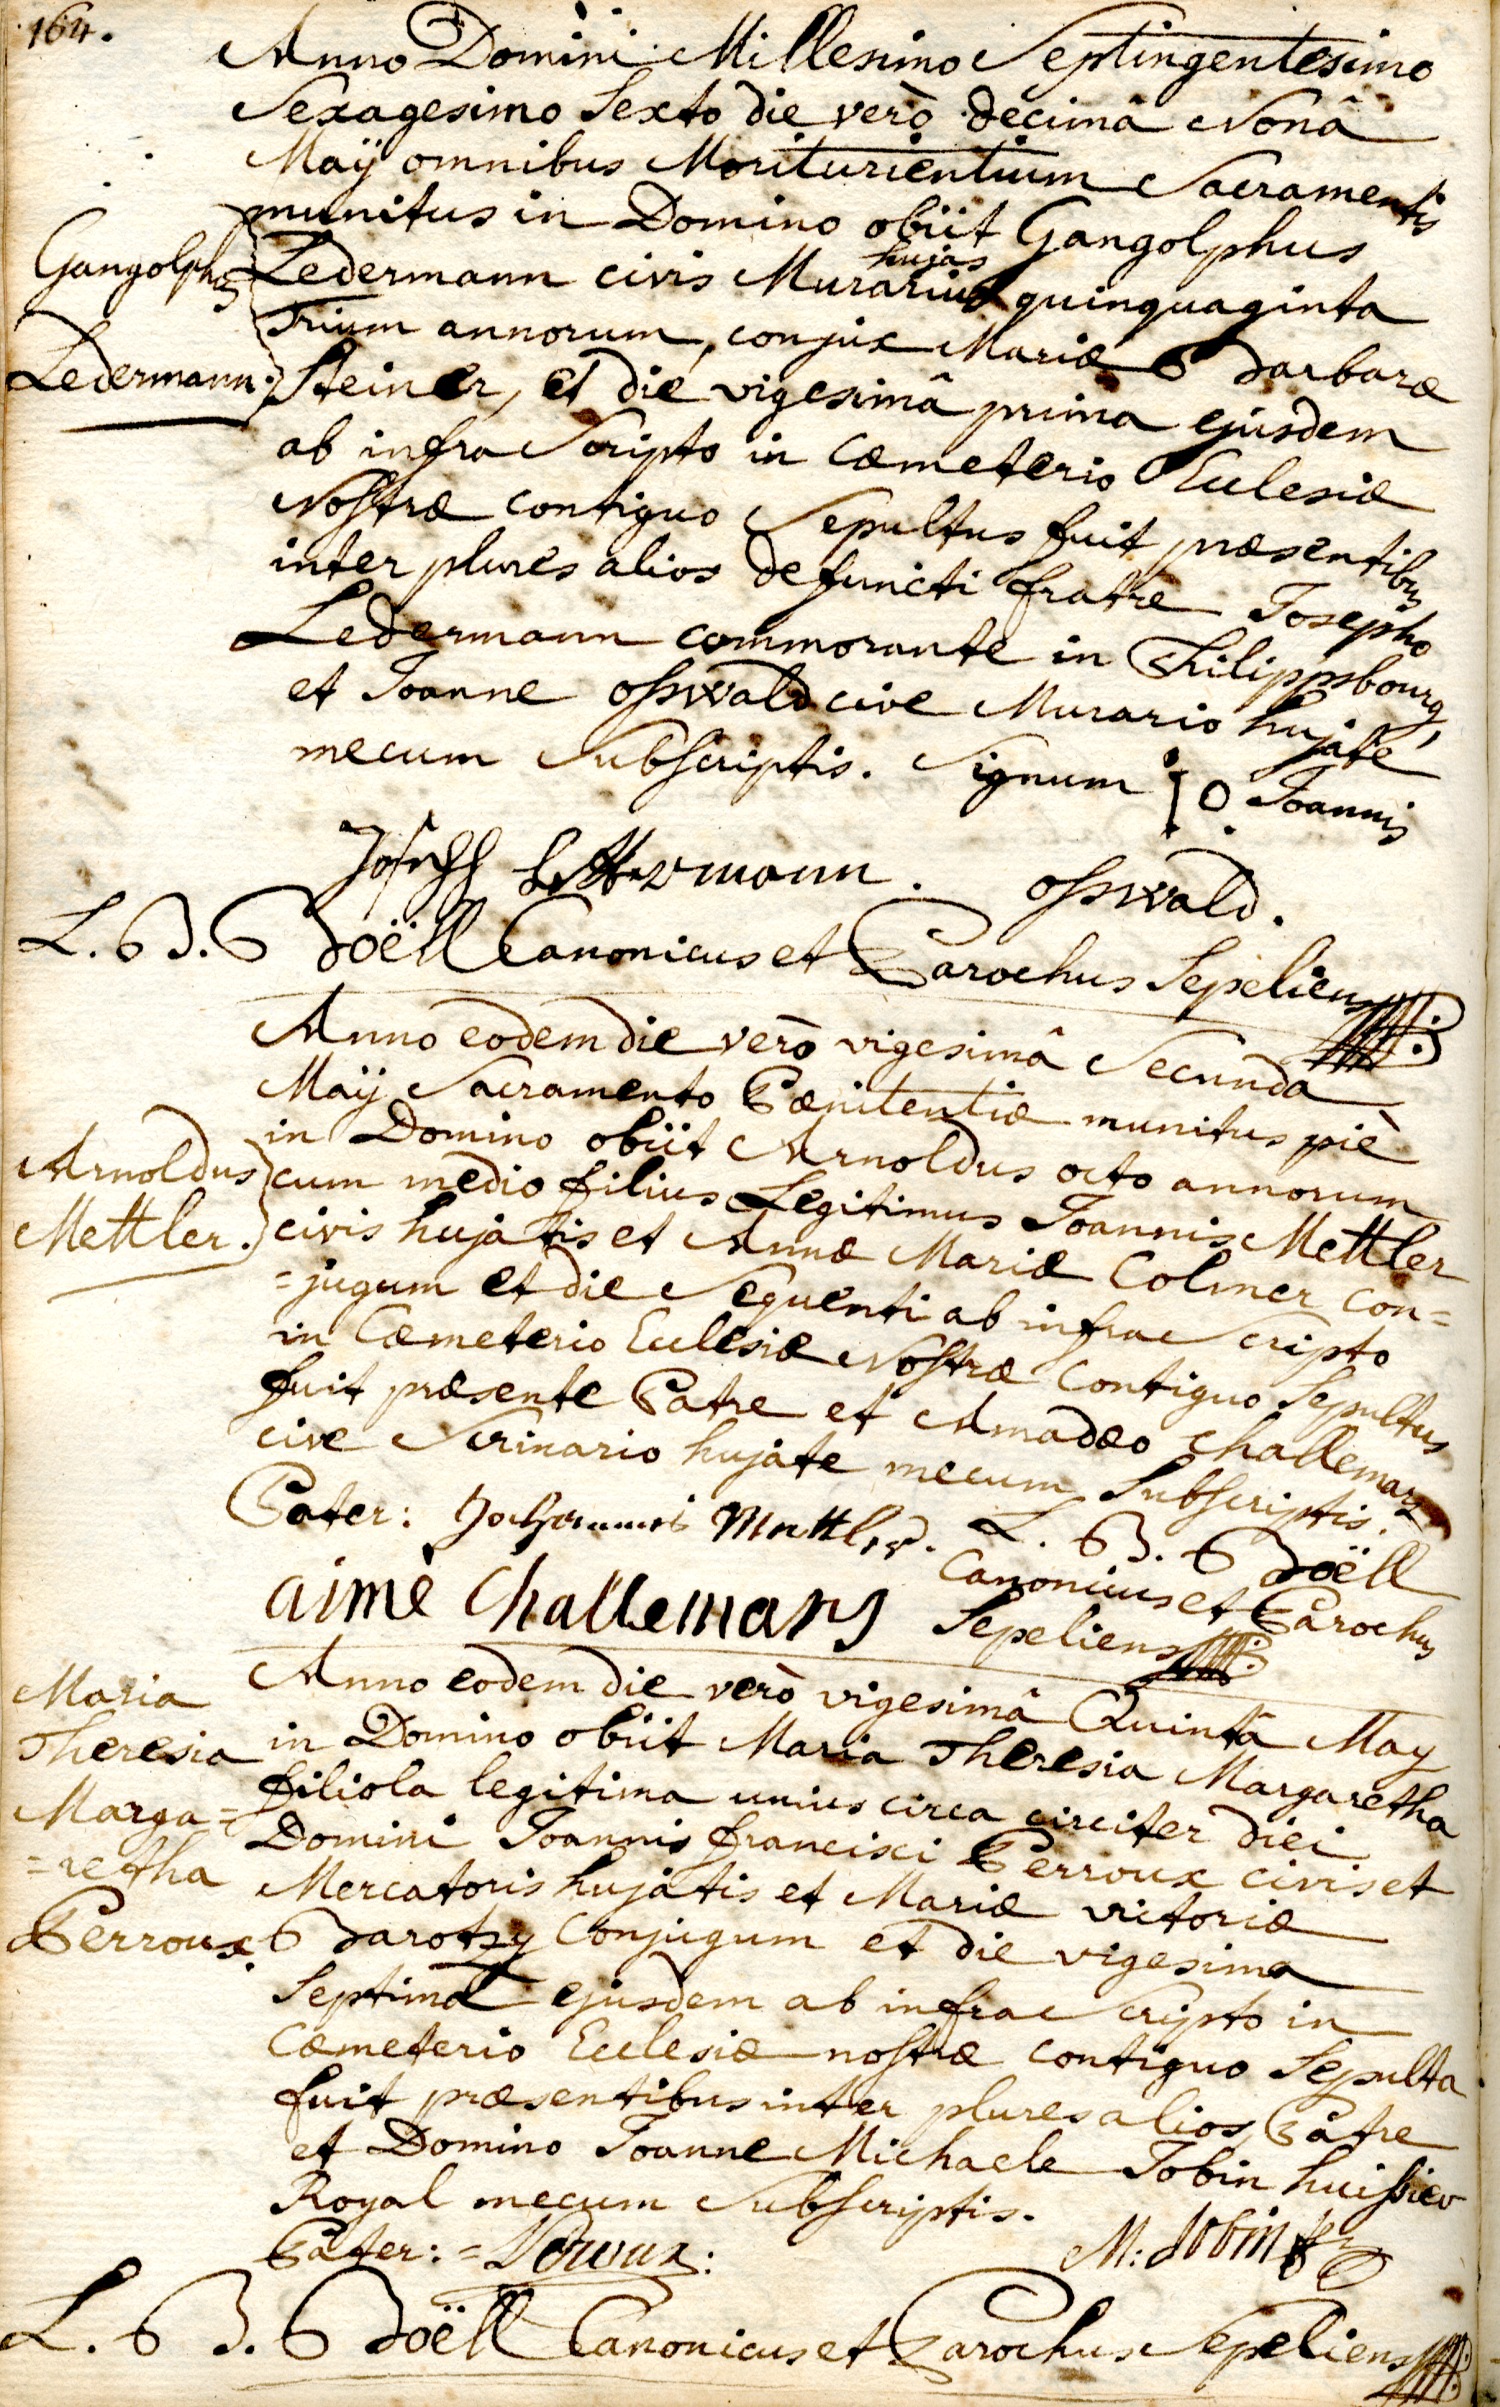 164.
Anno Domini Millesimo Septingentesimo
Sexagesimo Sexto die verò decimâ Nonâ
Maÿ omnibus Moriturientium Sacramentis
munitus in Domino obiit Gangolphus
Gangolphus
Ledermann.
Ledermann civis Murarius hujas quinquaginta
trium annorum, conjux Mariæ Barbaræ
Steiner, et die vigesimâ prima ejusdem
ab infra Scripto in Cæmeterio Ecclesiæ
Nostræ contiguo Sepultus fuit præsentibus
inter plures alios defuncti fratre Josepho
Ledermann commorante in Philippsbourg,
et Joanne Osswald cive Murario hujate
mecum Subscriptis. Signum O Joannis
Joseph Lettermann. Osswald.
L. B. Boëll Canonicus et Parochus Sepeliens
Anno eodem die verò vigesimâ Secunda
Maÿ Sacramento Pænitentiæ munitus piè
in Domino obiit Arnoldus octo annorum
Arnoldus
Mettler.
cum medio filius Legitimus Joannis Mettler
civis hujatis et Annæ Mariæ Colmer con=
=jugum et die Sequenti ab infra Scripto
in Cæmeterio Ecclesiæ Nostræ Contiguo Sepultus
fuit præsente Patre et Amadæo Challemans
cive Scrinario hujate mecum Subscriptis.
Pater: Johannes Mettler. L. B. Boëll
Canonicus et Parochus
aimé Challemans Sepeliens
Anno eodem die verò vigesimâ Quintâ May
Maria
Theresia
Marga=
=retha
Perroux.
in Domino obiit Maria Theresia Margaretha
filiola legitima unius circa circiter diei
Domini Joannis francisci Perroux civis et
Mercatoris hujatis et Mariæ victoriæ
Barotzy Conjugum et die vigesima
Septimâ ejusdem ab infra Scripto in
Cæmeterio Ecclesiæ nostræ contiguo Sepulta
fuit præsentibus inter plures alios Patre
et Domino Joanne Michaele Jobin huissier
Royal mecum Subscriptis.
Pater: = Perroux: M: Jobin
L. B. Boëll Canonicus et Parochus Sepeliens